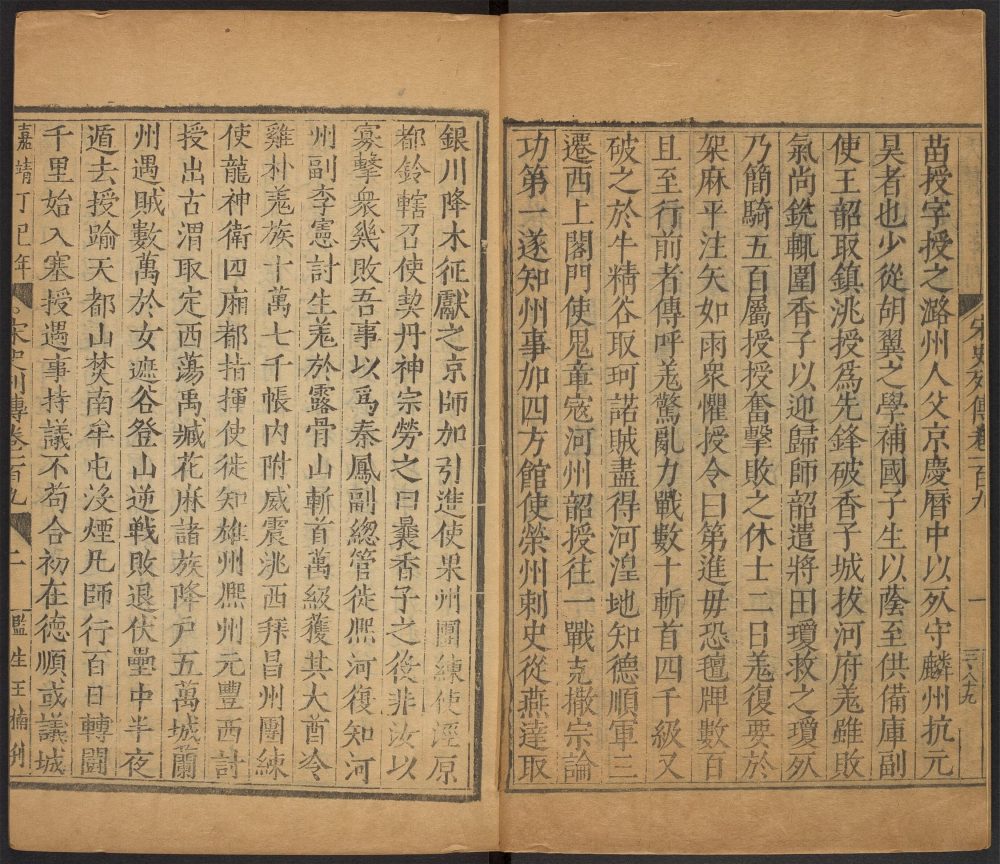 宋史列傳卷一百九 一 三八九
苗授字授之潞州人父京慶曆中以死守麟州抗元
昊者也少從胡翼之學補國子生以䕃至供備庫副
使王韶取鎮洮授爲先鋒破香子城拔河府羌雖敗
氣尚銳輒圍香子以迎歸師韶遣將田瓊救之瓊死
乃簡騎五百屬授授奮擊敗之休士二日羌復要於
架麻平注矢如雨衆懼授令曰第進毋恐氊牌數百
且至行前者傳呼羌驚亂力戰數十斬首四千級又
破之於牛精谷取珂諾賊盡得河湟地知德順軍三
遷西上閤門使鬼章寇河州韶授往一戰克撒宗論
功第一遂知州事加四方館使榮州刺史從燕達取
銀川降木征獻之京師加引進使果州團練使涇原
都鈐轄召使契丹神宗勞之曰曩香子之後非汝以
寡擊衆幾敗吾事以爲秦鳳副總管徙熈河復知河
州副李憲討生羌於露骨山斬首萬級獲其大酋冷
雞朴羌族十萬七千帳内附威震洮西拜昌州團練
使龍神衛四廂都指揮使徙知雄州熈州元豐西討
授出古渭取定西蕩禹臧花麻諸族降户五萬城蘭
州遇賊數萬於女遮谷登山逆戰敗退伏壘中半夜
遁去授踰天都山焚南牟屯没煙凡師行百日轉鬬
千里始入塞授遇事持議不苟合初在德順或議城
嘉靖丁巳年 宋史列傳卷一百九 二 監生王楠刋